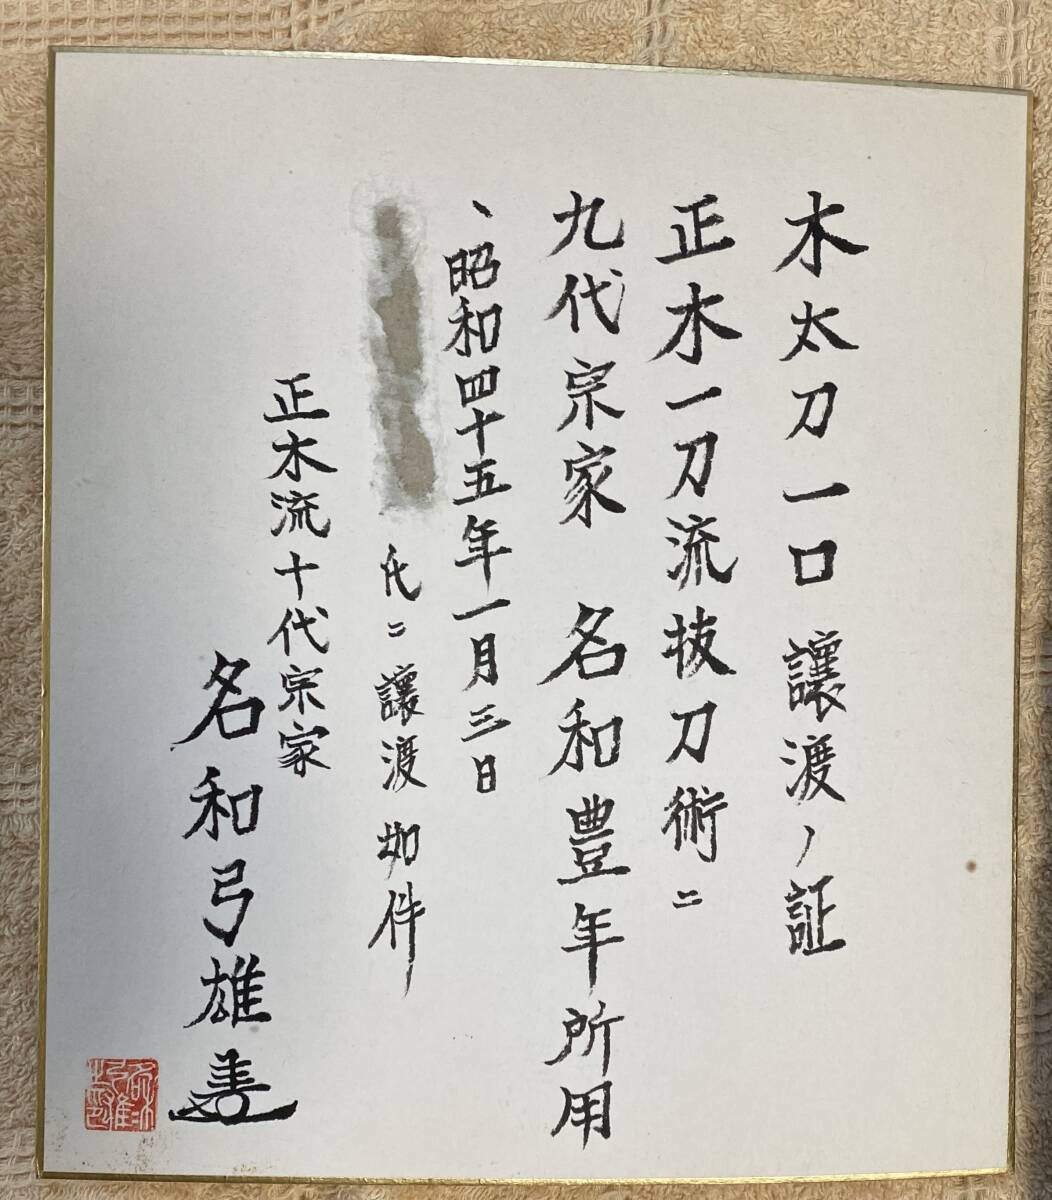 木太刀一口 讓渡ノ証
正木一刀流抜刀術ニ
九代宗家 名和豊年所用
、昭和四十五年一月三日
氏ニ讓渡 如件
正木流十代宗家
名和弓雄